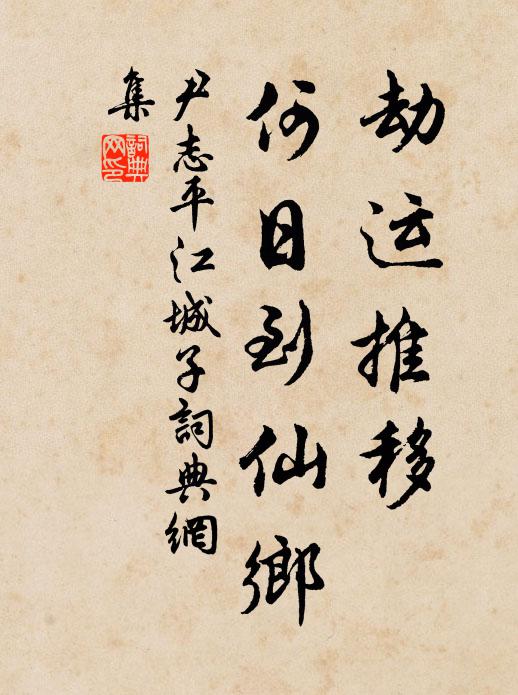 劫运推移
何日到仙鄉
尹志平江城子詞典網
集
詞典
网印